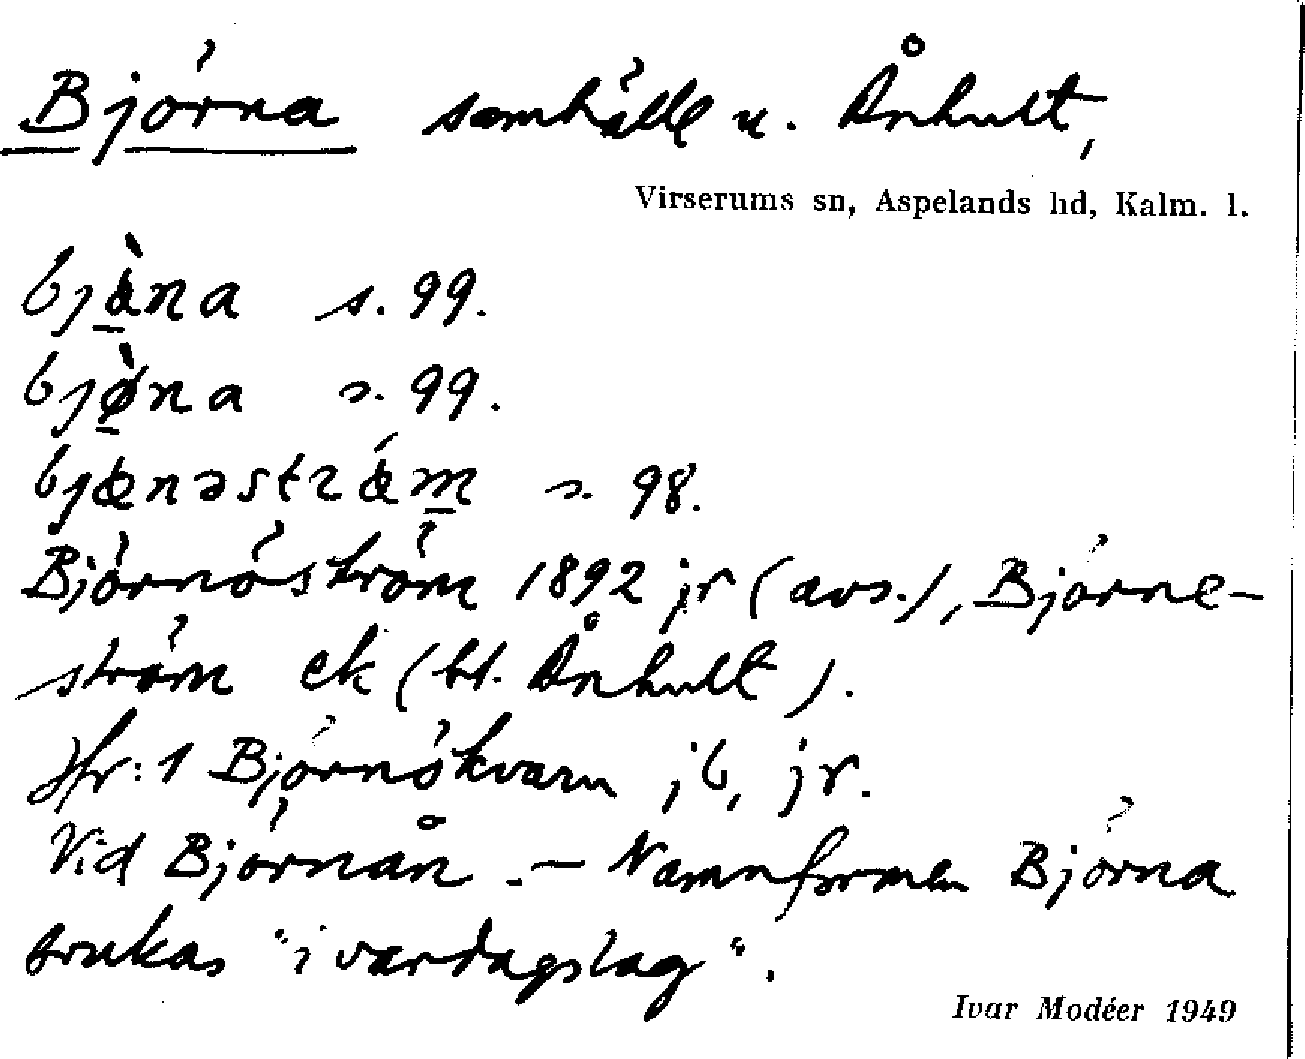 Björna samhälle u. Ånhult,
Virserums sn, Aspelands hd, Kalm. l.
bjæ̀na s. 99.
bjø̀na s. 99.
bjœnəstrœ́m s. 98.
Björnöström 1892 jr (avs.), Björne-
ström ek (bl. Ånhult).
Hr: 1 Björnökvarn jb, jr.
Vid Björnån. – Namnformen Björna
brukas "i vardagslag".
Ivar Modéer 1949